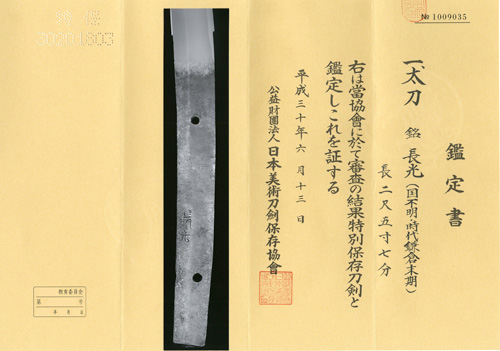 № 1009035
鑑定書
一、太刀 銘 長光(国不明・時代鎌倉末期)
長 二尺五寸七分
右は當協會に於て審査の結果特別保存刀剣と
鑑定しこれを証する
平成三十年六月十三日
公益財團法人 日本美術刀劍保存協會
教育委員会
第 号
年 月 日